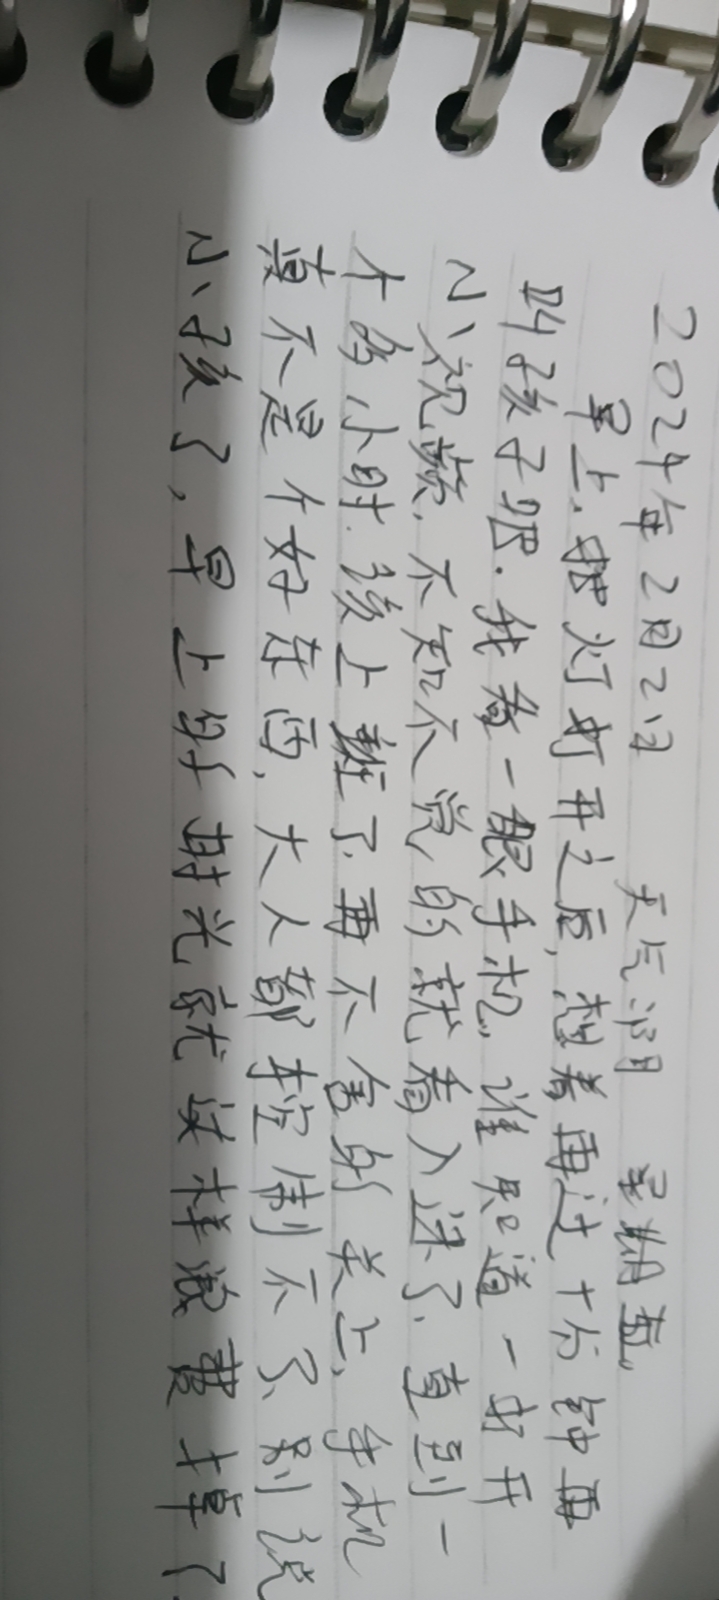 2024年2月2日 天气阴 星期五。
早上,把灯打开之后,想着再过十分钟再
叫孩子服.我看一眼手机,谁知道一打开
小视频,不知不觉的就看入迷了,直到一
个多小时.该上班了.再不舍的关上,手机
真不是个好东西,大人都控制不了,别说
小孩了,早上的时光就这样浪费掉了